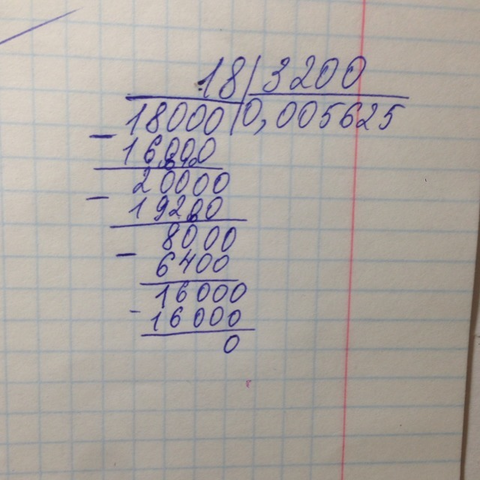 18 3200
18000 0,005625
- 16000
20000
- 19200
8000
- 6400
16000
- 16000
0